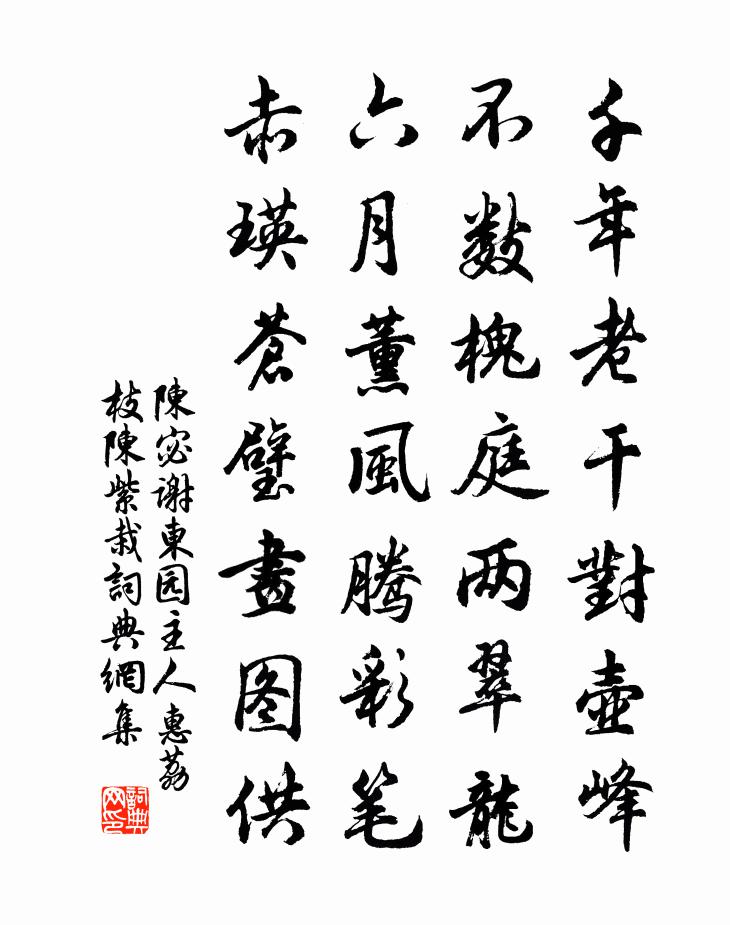 千年老干對壺峰
不數槐庭两翠龍
六月薰風騰彩笔
赤瑛蒼璧畫图供
陳宓谢東园主人惠荔
枝陳紫栽詞典網集
詞典网印